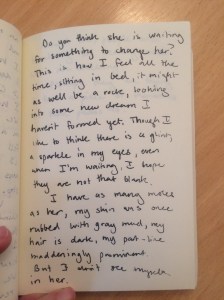 Do you think she is waiting
for something to change her?
This is how I feel all the
time, sitting in bed, it might
as well be a rock, looking
into some new dream I
haven't formed yet. Though I
like to think there is a glint,
a sparkle in my eyes, even
when I'm waiting. I hope
they are not that blank.
I have as many moles
as her, my skin was once
rubbed with gray mud, my
hair is dark, my part-line
maddeningly prominent.
But I don't see myself
in her.